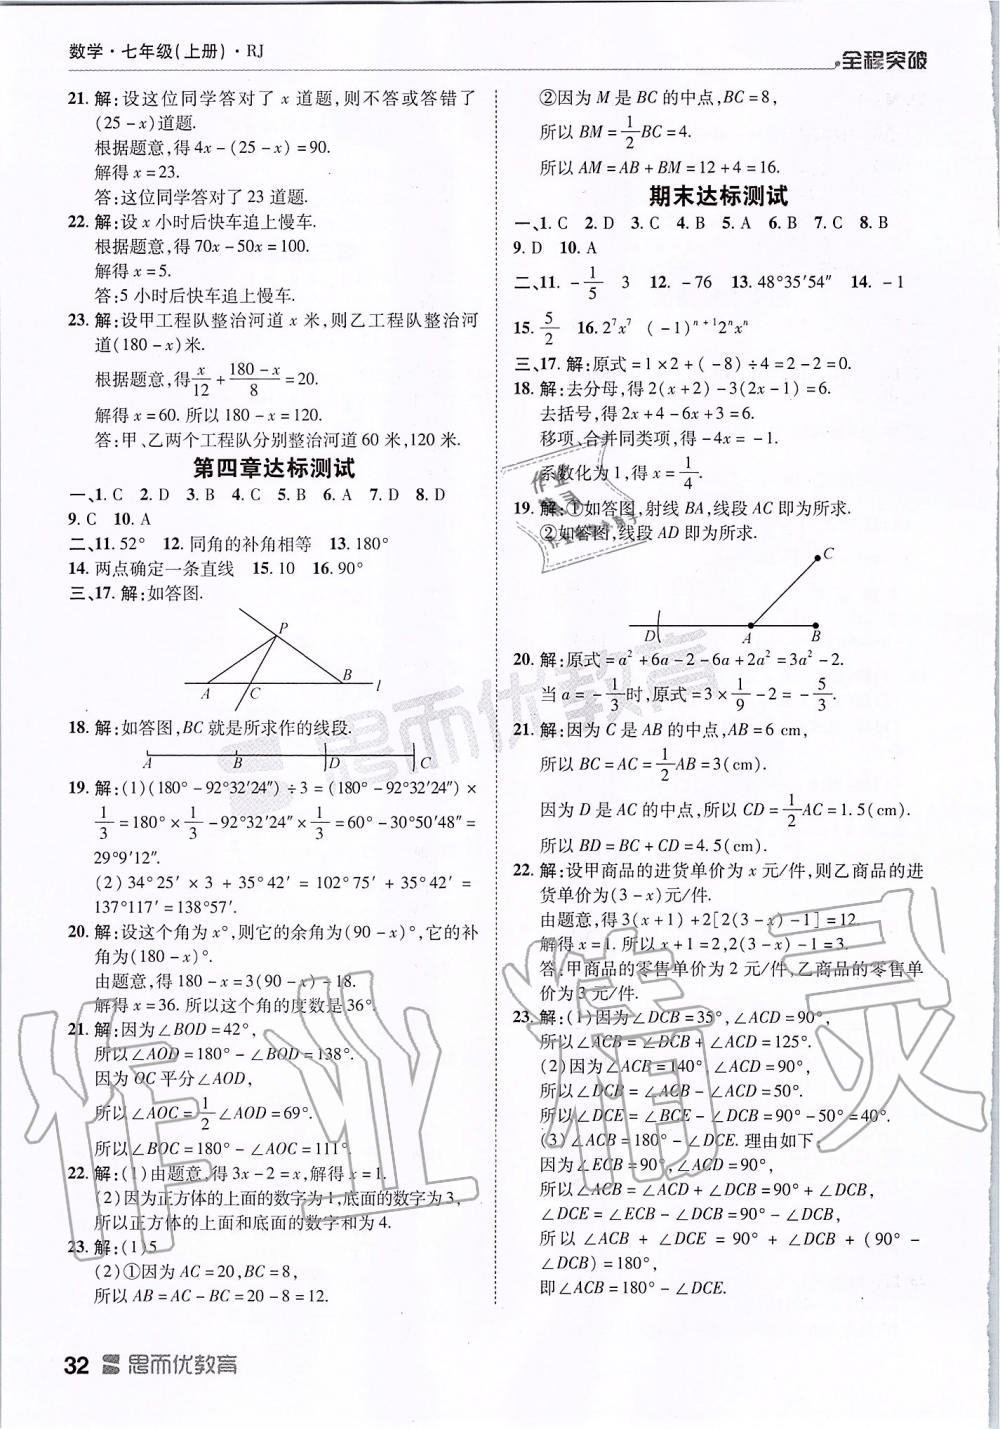 数学·七年级(上册)·RJ
全程突破
21. 解:设这位同学答对了 x 道题,则不答或答错了
(25-x)道题.
根据题意,得 4x-(25-x)=90.
解得 x=23.
答:这位同学答对了 23 道题.
22. 解:设 x 小时后快车追上慢车.
根据题意,得 70x-50x=100.
解得 x=5.
答:5 小时后快车追上慢车.
23. 解:设甲工程队整治河道 x 米,则乙工程队整治河
道(180-x)米.
根据题意,得 x/12 + (180-x)/8 = 20.
解得 x=60. 所以 180-x=120.
答:甲、乙两个工程队分别整治河道 60 米,120 米.
第四章达标测试
一、1. C 2. D 3. B 4. C 5. C 6. D 7. D 8. D
9. C 10. A
二、11. 52° 12. 同角的补角相等 13. 180°
14. 两点确定一条直线 15. 10 16. 90°
三、17. 解:如答图.
P
A C B l
18. 解:如答图,BC 就是所求作的线段.
A B D C
19. 解:(1)(180°-92°32′24″)÷3=(180°-92°32′24″)×
1/3=180°×1/3-92°32′24″×1/3=60°-30°50′48″=
29°9′12″.
(2)34°25′×3+35°42′=102°75′+35°42′=
137°117′=138°57′.
20. 解:设这个角为 x°,则它的余角为(90-x)°,它的补
角为(180-x)°.
由题意,得 180-x=3(90-x)-18.
解得 x=36. 所以这个角的度数是 36°.
21. 解:因为∠BOD=42°,
所以∠AOD=180°-∠BOD=138°.
因为 OC 平分∠AOD,
所以∠AOC=1/2∠AOD=69°.
所以∠BOC=180°-∠AOC=111°.
22. 解:(1)由题意,得 3x-2=x,解得 x=1.
(2)因为正方体的上面的数字为 1,底面的数字为 3,
所以正方体的上面和底面的数字和为 4.
23. 解:(1)5
(2)①因为 AC=20,BC=8,
所以 AB=AC-BC=20-8=12.
②因为 M 是 BC 的中点,BC=8,
所以 BM=1/2BC=4.
所以 AM=AB+BM=12+4=16.
期末达标测试
一、1. C 2. D 3. C 4. B 5. A 6. B 7. C 8. B
9. D 10. A
二、11. -1/5 3 12. -76 13. 48°35′54″ 14. -1
15. 5/2 16. 2⁷x⁷ (-1)ⁿ⁺¹2ⁿxⁿ
三、17. 解:原式=1×2+(-8)÷4=2-2=0.
18. 解:去分母,得 2(x+2)-3(2x-1)=6.
去括号,得 2x+4-6x+3=6.
移项、合并同类项,得-4x=-1.
系数化为 1,得 x=1/4.
19. 解:①如答图,射线 BA,线段 AC 即为所求.
②如答图,线段 AD 即为所求.
C
D A B
20. 解:原式=a²+6a-2-6a+2a²=3a²-2.
当 a=-1/3时,原式=3×1/9-2=-5/3.
21. 解:因为 C 是 AB 的中点,AB=6 cm,
所以 BC=AC=1/2AB=3(cm).
因为 D 是 AC 的中点,所以 CD=1/2AC=1.5(cm).
所以 BD=BC+CD=4.5(cm).
22. 解:设甲商品的进货单价为 x 元/件,则乙商品的进
货单价为(3-x)元/件.
由题意,得 3(x+1)+2[2(3-x)-1]=12.
解得 x=1. 所以 x+1=2,2(3-x)-1=3.
答:甲商品的零售单价为 2 元/件,乙商品的零售单
价为 3 元/件.
23. 解:(1)因为∠DCB=35°,∠ACD=90°,
所以∠ACB=∠DCB+∠ACD=125°.
(2)因为∠ACB=140°,∠ACD=90°,
所以∠DCB=∠ACB-∠ACD=50°.
所以∠DCE=∠BCE-∠DCB=90°-50°=40°.
(3)∠ACB=180°-∠DCE. 理由如下:
因为∠ECB=90°,∠ACD=90°,
所以∠ACB=∠ACD+∠DCB=90°+∠DCB,
∠DCE=∠ECB-∠DCB=90°-∠DCB,
所以∠ACB+∠DCE=90°+∠DCB+(90°-
∠DCB)=180°,
即∠ACB=180°-∠DCE.
32 思而优教育
思而优教育
作业精灵